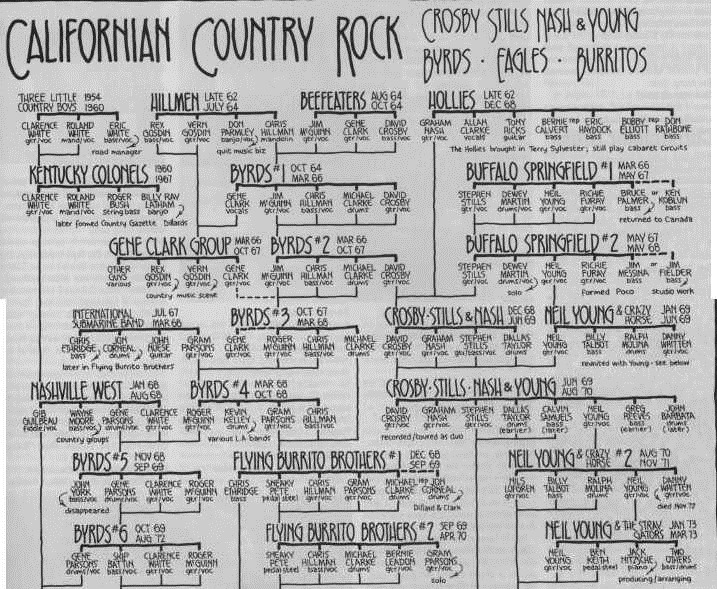 CALIFORNIAN COUNTRY ROCK
CROSBY STILLS NASH & YOUNG
BYRDS · EAGLES · BURRITOS
THREE LITTLE 1954
COUNTRY BOYS 1960
CLARENCE WHITE gtr/voc
ROLAND WHITE mand/voc
ERIC WHITE bass/voc
road manager
HILLMEN LATE 62 JULY 64
REX GOSDIN bass/voc
VERN GOSDIN gtr/voc
DON PARMLEY banjo/voc
CHRIS HILLMAN mandolin
quit music biz
BEEFEATERS AUG 64 OCT 64
JIM McGUINN gtr/voc
GENE CLARK gtr/voc
DAVID CROSBY bass/voc
HOLLIES LATE 62 DEC 68
GRAHAM NASH gtr/voc
ALLAN CLARKE vocals
TONY HICKS guitar
BERNIE CALVERT bass
rep
ERIC HAYDOCK bass
BOBBY ELLIOTT drums
rep
DON RATHBONE drums
The Hollies brought in Terry Sylvester; still play cabaret circuits
KENTUCKY COLONELS 1960 1967
CLARENCE WHITE gtr/voc
ROLAND WHITE mand/voc
ROGER BUSH string bass
BILLY RAY LATHAM banjo
later fomed Country Gazette
Dillards
BYRDS #1 OCT 64 MAR 66
GENE CLARK vocals
JIM McGUINN gtr/voc
CHRIS HILLMAN bass/voc
MICHAEL CLARKE drums
DAVID CROSBY gtr/voc
BUFFALO SPRINGFIELD #1 MAR 66 MAY 67
STEPHEN STILLS gtr/voc
DEWEY MARTIN drums/voc
NEIL YOUNG gtr/voc
RICHIE FURAY gtr/voc
BRUCE PALMER bass
or
KEN KOBLUN bass
returned to Canada
GENE CLARK GROUP MAR 66 OCT 67
OTHER GUYS various
REX GOSDIN gtr/voc
VERN GOSDIN gtr/voc
GENE CLARK gtr/voc
country music scene
BYRDS #2 MAR 66 OCT 67
JIM McGUINN gtr/voc
CHRIS HILLMAN bass/voc
MICHAEL CLARKE drums
DAVID CROSBY gtr/voc
BUFFALO SPRINGFIELD #2 MAY 67 MAY 68
STEPHEN STILLS gtr/voc
DEWEY MARTIN drums/voc
NEIL YOUNG gtr/voc
RICHIE FURAY gtr/voc
JIM MESSINA bass/voc
or
JIM FIELDER bass
solo
formed Poco
studio work
INTERNATIONAL SUBMARINE BAND JUL 67 MAR 68
CHRIS ETHRIDGE bass
JON CORNEAL drums
JOHN NUESE guitar
GRAM PARSONS gtr/voc
later in Flying Burrito Brothers
BYRDS #3 OCT 67 MAR 68
GENE CLARK gtr/voc
ROGER McGUINN gtr/voc
CHRIS HILLMAN bass/voc
MICHAEL CLARKE drums
CROSBY·STILLS & NASH DEC 68 JUN 69
DAVID CROSBY gtr/voc
GRAHAM NASH gtr/voc
STEPHEN STILLS gtr/bass/voc
DALLAS TAYLOR drums
NEIL YOUNG & CRAZY HORSE JAN 69 JUN 69
NEIL YOUNG gtr/voc
BILLY TALBOT bass
RALPH MOLINA drums
DANNY WHITTEN gtr/voc
reunited with Young - see below
NASHVILLE WEST JAN 68 AUG 68
GIB GUILBEAU fiddle/voc
WAYNE MOORE bass/voc
GENE PARSONS drums/voc
CLARENCE WHITE gtr/voc
country groups
BYRDS #4 MAR 68 OCT 68
ROGER McGUINN gtr/voc
KEVIN KELLEY drums
GRAM PARSONS gtr/voc
CHRIS HILLMAN bass/voc
various L.A bands
CROSBY·STILLS·NASH & YOUNG JUN 69 AUG 70
DAVID CROSBY gtr/voc
GRAHAM NASH gtr/voc
STEPHEN STILLS gtr/voc
DALLAS TAYLOR drums (earlier)
CALVIN SAMUELS bass (later)
NEIL YOUNG gtr/voc
GREG REEVES bass (earlier)
JOHN BARBATA drums (later)
recorded/toured as duo
BYRDS #5 NOV 68 SEP 69
JOHN YORK bass/voc
GENE PARSONS drums/voc
CLARENCE WHITE gtr/voc
ROGER McGUINN gtr/voc
disappeared
FLYING BURRITO BROTHERS #1 DEC 68 SEP 69
CHRIS ETHRIDGE bass
SNEAKY PETE pedal steel
CHRIS HILLMAN gtr/voc
GRAM PARSONS gtr/voc
MICHAEL CLARKE drums
rep
JON CORNEAL drums
Dillard & Clark
NEIL YOUNG & CRAZY HORSE #2 AUG 70 NOV 71
NILS LOFGREN gtr/voc
BILLY TALBOT bass
RALPH MOLINA drums
NEIL YOUNG gtr/voc
DANNY WHITTEN gtr/voc
died Nov 72
BYRDS #6 OCT 69 AUG 72
GENE PARSONS drums/voc
SKIP BATTIN bass/voc
CLARENCE WHITE gtr/voc
ROGER McGUINN gtr/voc
FLYING BURRITO BROTHERS #2 SEP 69 APR 70
SNEAKY PETE pedal steel
CHRIS HILLMAN bass/voc
MICHAEL CLARKE drums
BERNIE LEADON gtr/voc
GRAM PARSONS gtr/voc
solo
NEIL YOUNG & THE STRAY GATORS JAN 73 MAR 73
NEIL YOUNG gtr/voc
BEN KEITH pedal steel
JACK NITZSCHE piano
TWO OTHERS bass/drums
producing/arranging